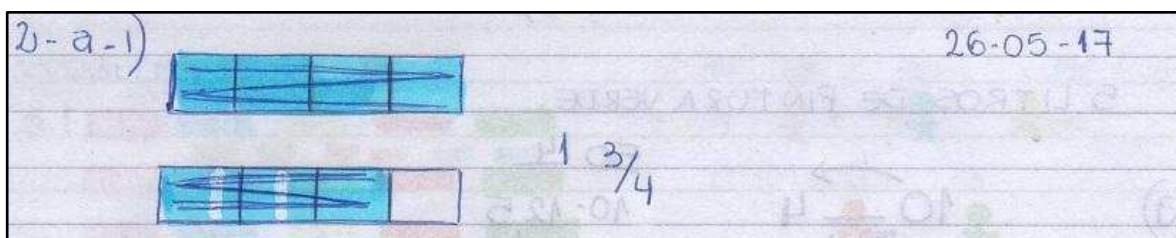 2-a-1) 26-05-17
1 3/4